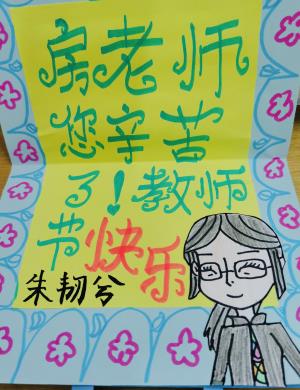 房老师
您辛苦
了！教师
节快乐
朱韧兮